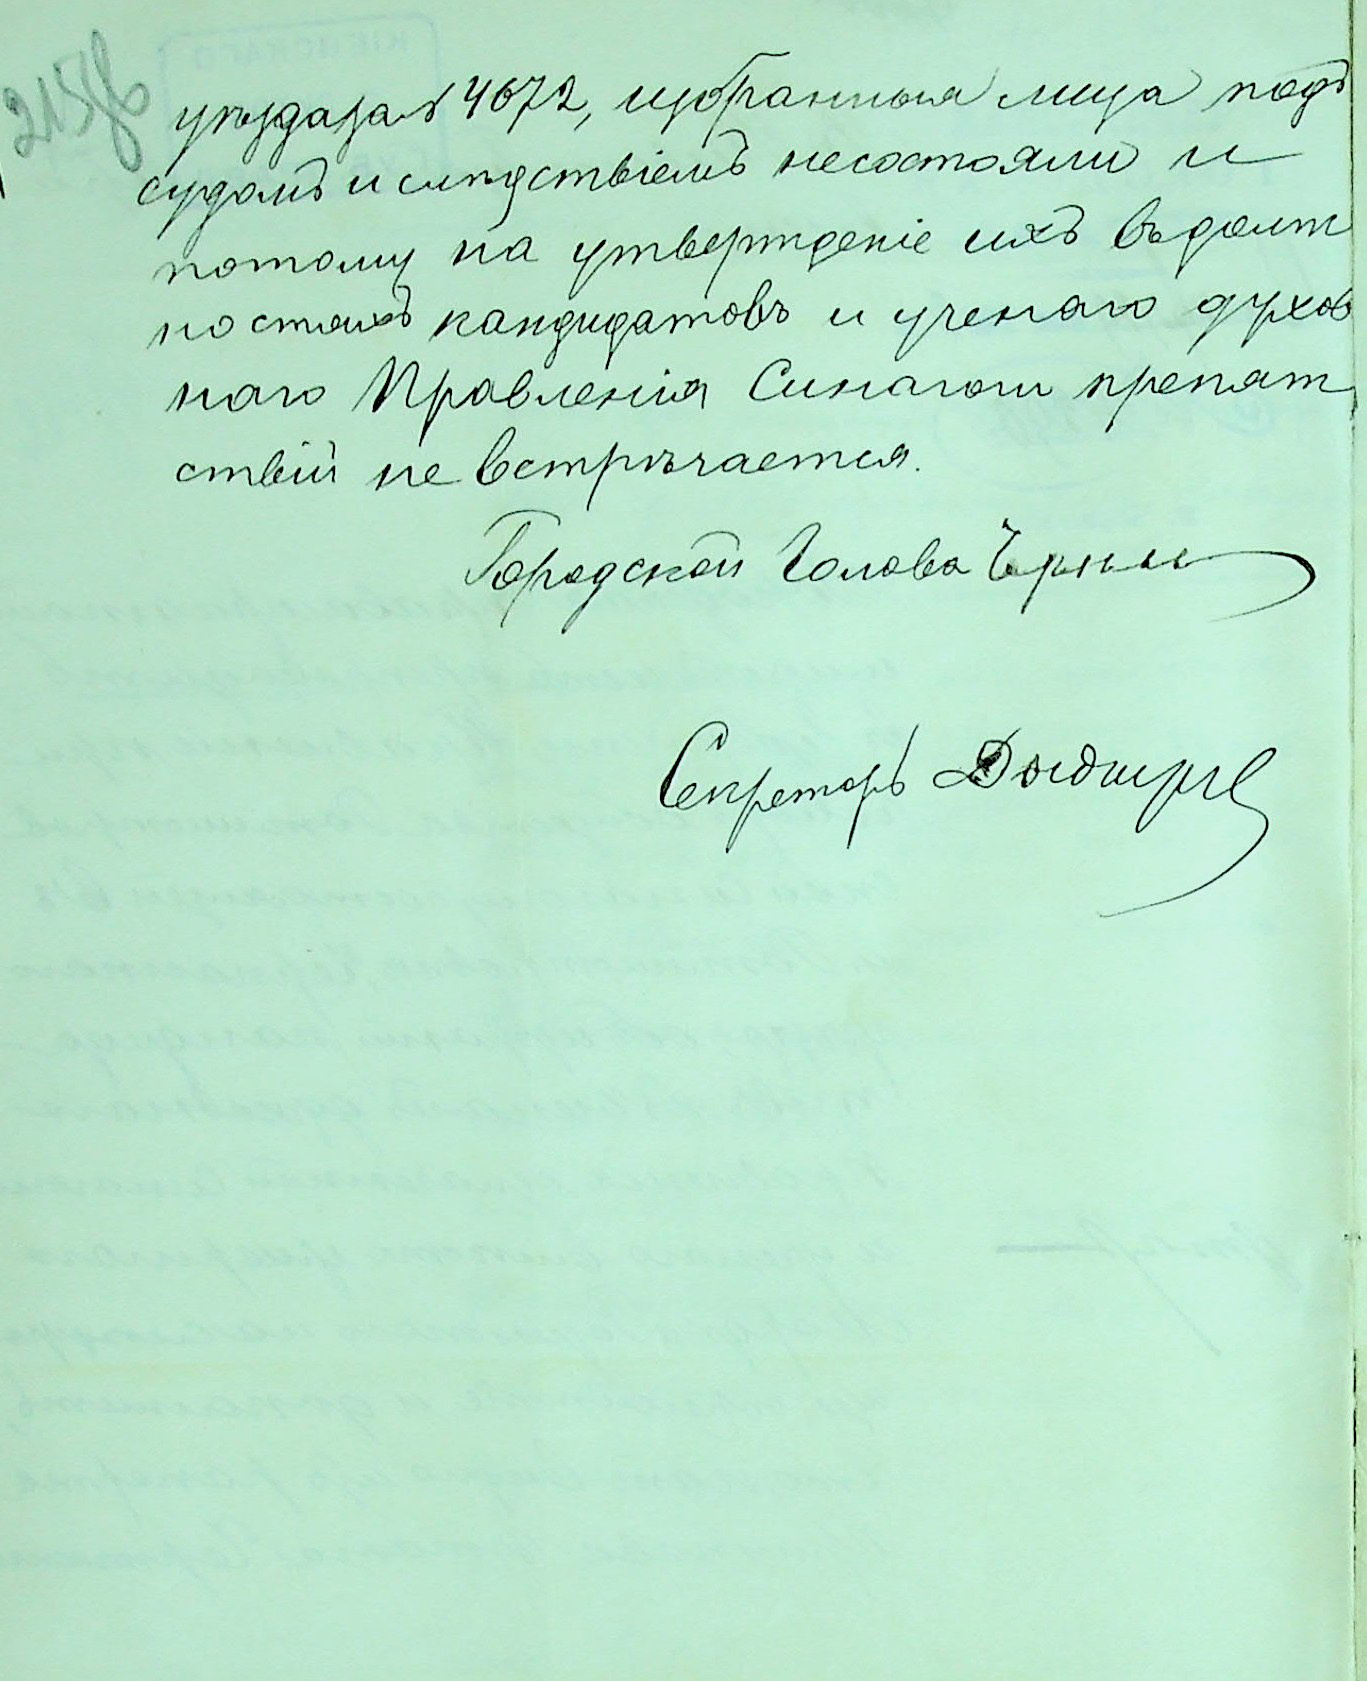 уѣзда за № 4672, избранныя лица подъ
судомъ и слѣдствіемъ несостояли и
потому на утвержденіе ихъ въ долж
ностяхъ кандидатовъ и ученаго духов
наго Правленія Синагоги препят
ствій не встрѣчается.
Городской Голова
Секретарь